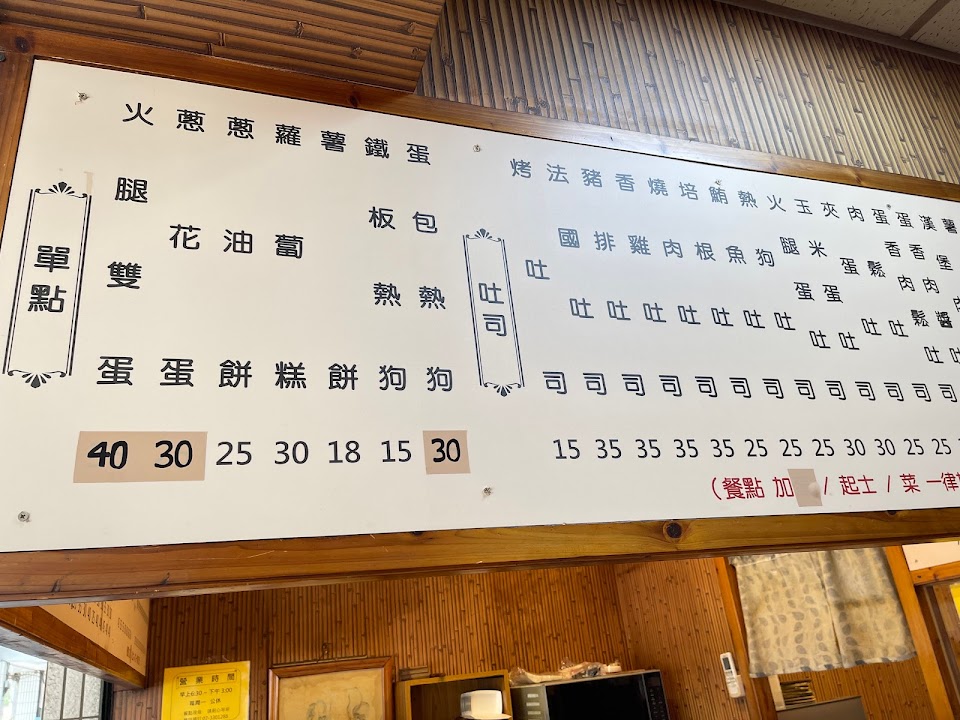 單點
火腿雙蛋 40
蔥花蛋 30
蔥油餅 25
蘿蔔糕 30
薯餅 18
鐵板熱狗 15
蛋包熱狗 30
吐司
烤吐司 15
法國吐司 35
豬排吐司 35
香雞吐司 35
燒肉吐司 35
培根吐司 25
鮪魚吐司 25
熱狗吐司 25
火腿蛋吐司 30
玉米蛋吐司 30
夾蛋吐司 25
肉鬆吐司 25
蛋香肉鬆吐司
蛋香肉醬吐司
漢堡肉
薯
(餐點 加 / 起士 / 菜 一律
營業時間
早上6:30~下午3:00
每周一 公休